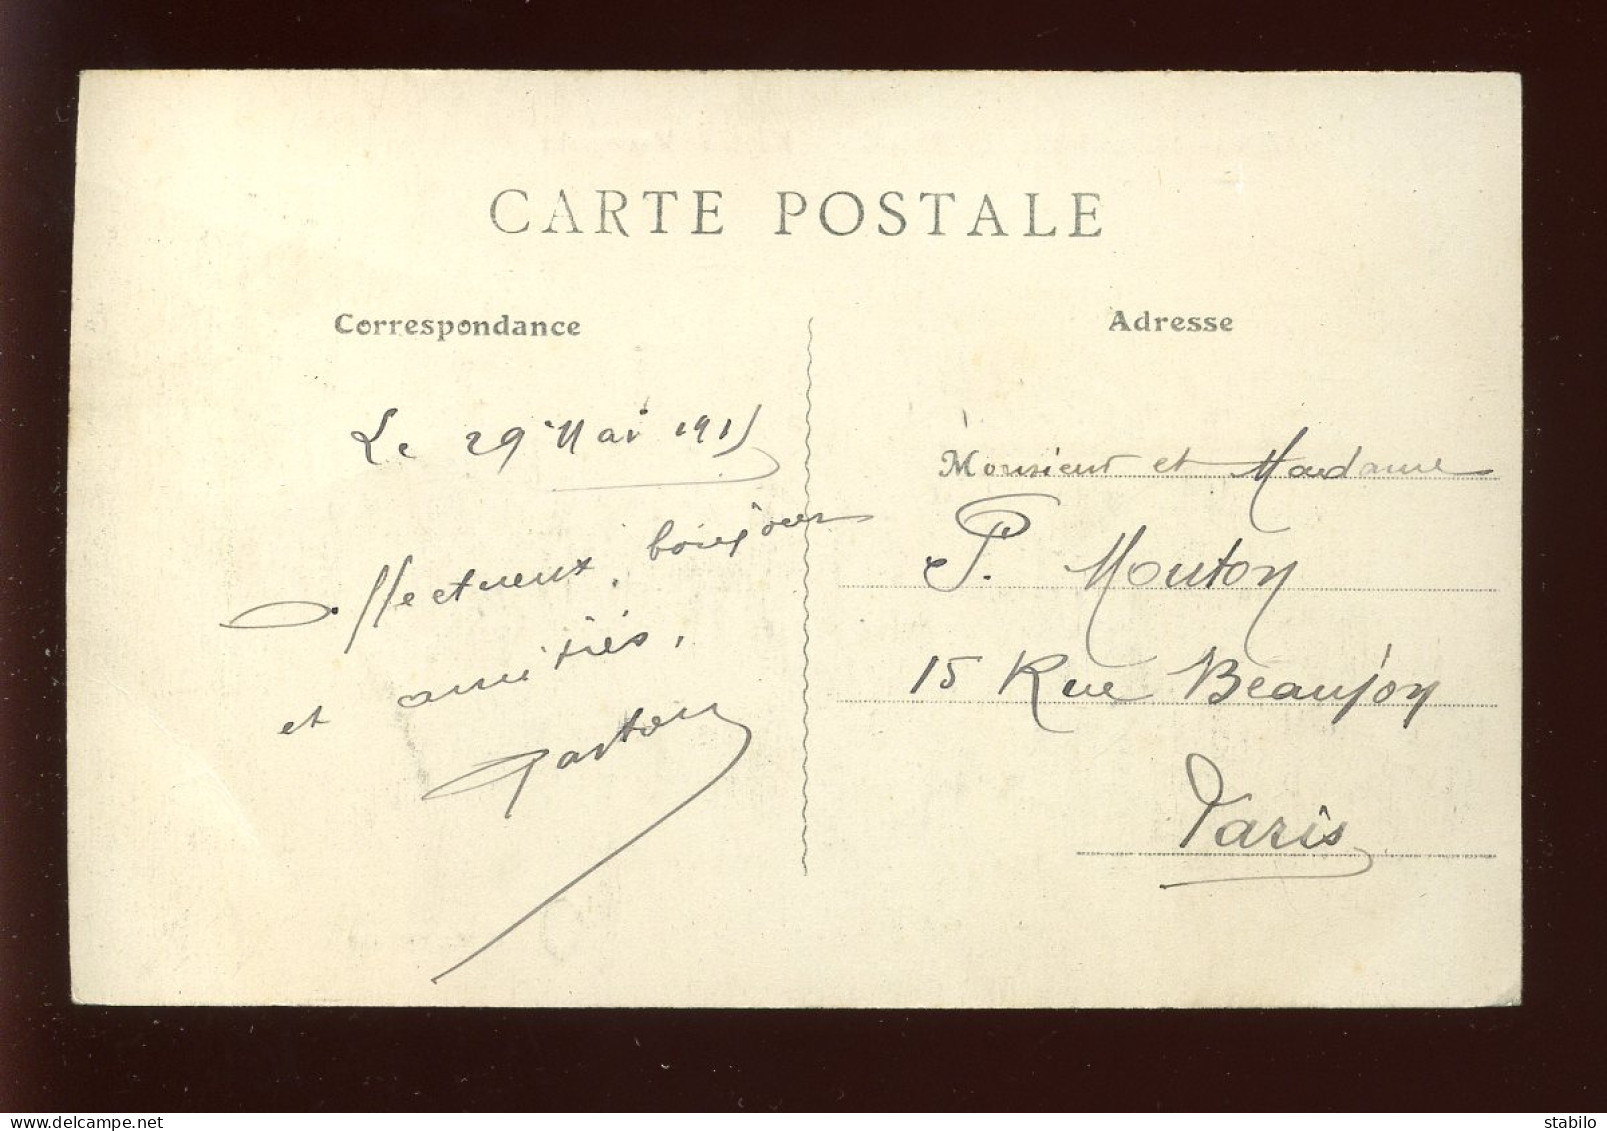 CARTE POSTALE
Correspondance
Le 29 Mai 1915
Affectueux bonjour
et amitiés,
Gaston
Adresse
Monsieur et Madame
P. Mouton
15 Rue Beaujon
Paris
www.delcampe.net
stabilo